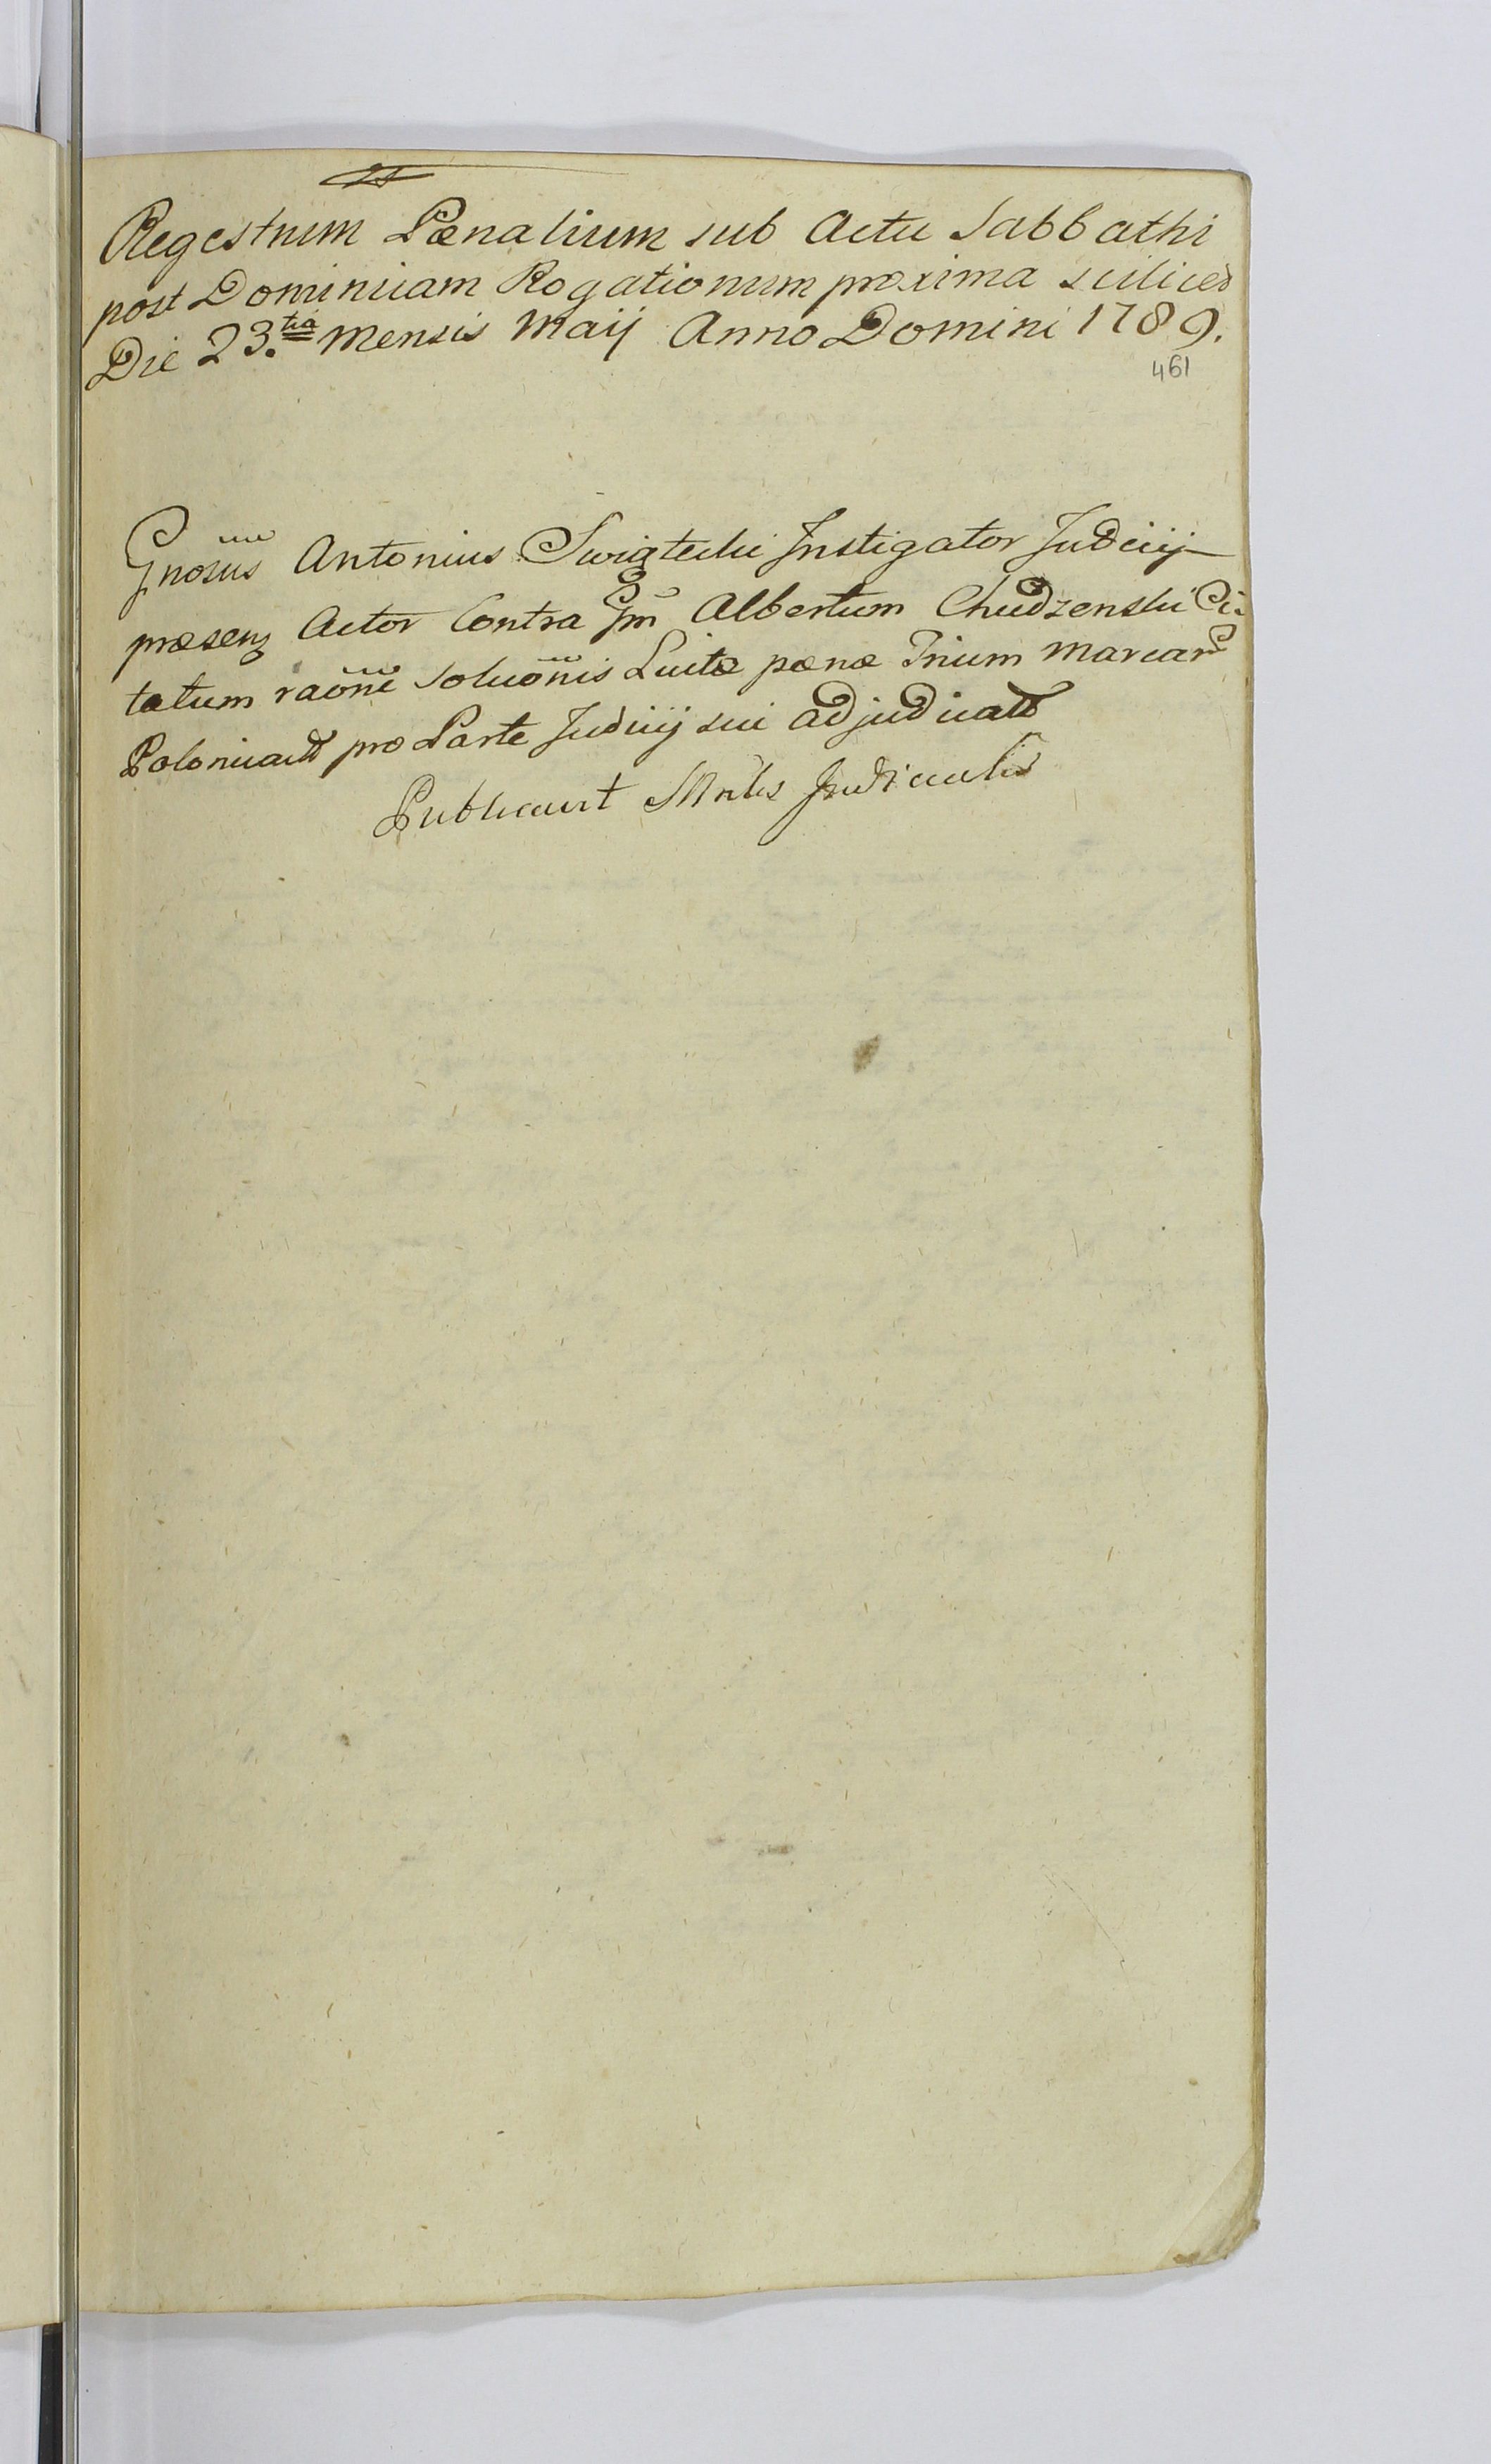 Regestrum Pœnalium sub Actu Sabbathi
post Dominicam Rogationum proxima scilicet
Die 23.tia Mensis Maij Anno Domini 1789.
461
Gnosus Antonius Swiątecki Instigator Judicij
præsens Actor Contra Gm Albertum Chudzenski Ci-
tatum raône soluônis Luitæ pœnæ Trium Marcar
Polonicall pro Parte Judicij sui adjudicatt
Publicavit Mnlis Judicialis